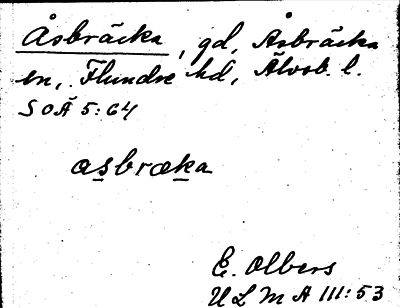 Åsbräcka, gd, Åsbräcka
sn, Flundre hd, Älvsb. l.
SOÄ 5:64
asbræka
E. Olbers
ULMA 111:53